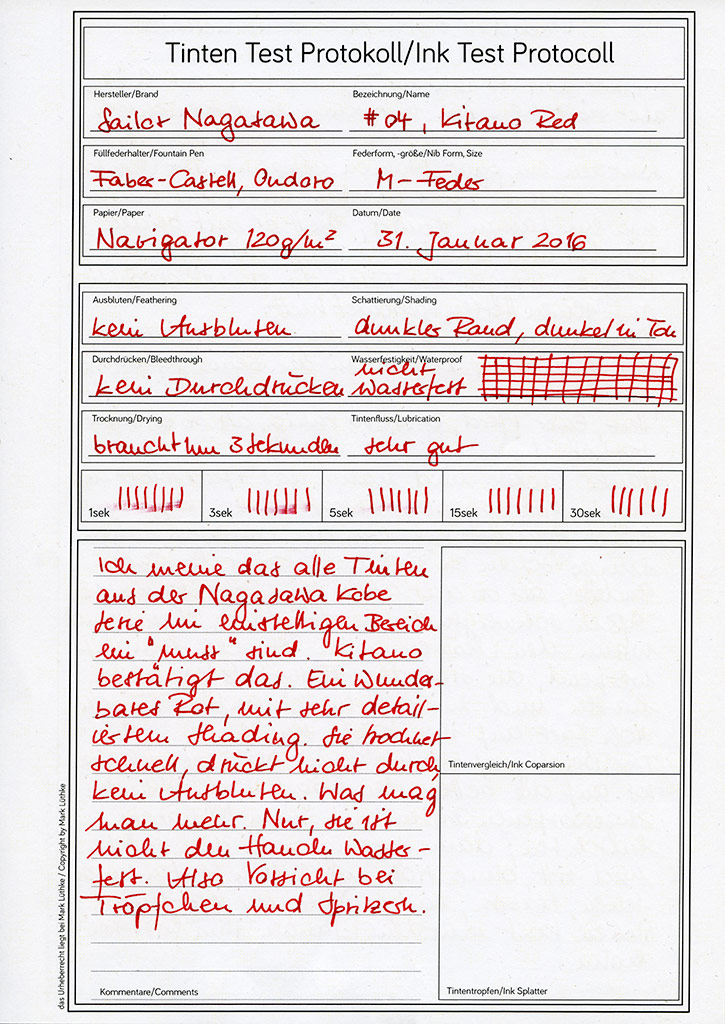 Tinten Test Protokoll/Ink Test Protocoll
Hersteller/Brand
Sailor Nagasawa
Bezeichnung/Name
#04, Kitano Red
Füllfederhalter/Fountain Pen
Faber-Castell, Ondoro
Federform, -größe/Nib Form, Size
M-Feder
Papier/Paper
Navigator 120g/m²
Datum/Date
31. Januar 2016
Ausbluten/Feathering
kein Ausbluten
Schattierung/Shading
dunkler Rand, dunkel im Ton
Durchdrücken/Bleedthrough
kein Durchdrücken
Wasserfestigkeit/Waterproof
nicht
wasserfest
Trocknung/Drying
braucht nur 3 Sekunden
Tintenfluss/Lubrication
sehr gut
1sek
3sek
5sek
15sek
30sek
Ich meine das alle Tinten
aus der Nagasawa Kobe
Serie im einstelligen Bereich
ein "muss" sind. Kitano
bestätigt das. Ein Wunder-
bares Rot, mit sehr detail-
iertem Shading. Sie trocknet
schnell, drückt nicht durch
kein Ausbluten. Was mag
man mehr. Nur, sie ist
nicht den Wasser-
fest. Also Vorsicht bei
Tröpfchen und Spritzern.
Kommentare/Comments
Tintenvergleich/Ink Coparsion
Tintentropfen/Ink Splatter
das Urheberrecht liegt bei Mark Lüthke / Copyright by Mark Lüthke